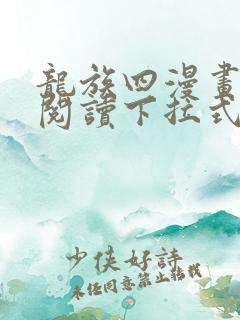 龍族四漫畫
閱讀下拉式
少俠好詩
未經同意禁止轉載